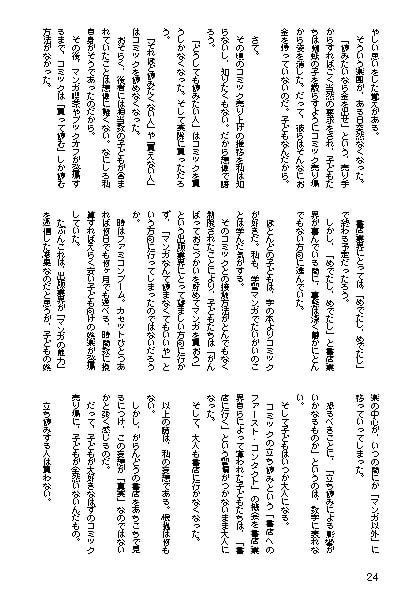 やしい思いをした覚えがある。
　そういう楽園が、ある日突然なくなった。
「読みたいなら金を出せ」という、売り手
からすればごく当然の要求をされ、子どもた
ちは蜘蛛の子を散らすようにコミック売り場
から姿を消した。だって、彼らはそんなにお
金を持っていないのだ。子どもなんだから。
　さて。
　その頃のコミック売り上げの推移を私は知
らないし、知りたくもない。だから想像で語
ろう。
「どうしても読みたい人」はコミックを買
うしかなくなった。そして実際に買っただろ
う。
「それほど読みたくない人」や「買えない人」
はコミックを読めなくなった。
　おそらく、後者には相当数の子どもが含ま
れていたことは想像に難くない。なにしろ私
自身がそうであったのだから。
　その後、マンガ喫茶やブックオフが発展す
るまで、コミックは「買って読む」しか読む
方法がなかった。
　書店業界にとっては、「めでたし、めでたし」
で終わる予定だったろう。
　しかし、「めでたし、めでたし」と書店業
界が喜んでいる間に、事態は深く静かにとん
でもない方向に進んでいた。
　ほとんどの子どもは、字の本よりコミック
が好きだ。私も、学習マンガでたいがいのこ
とは学んだ気がする。
　そのコミックとの接触方法がとんでもなく
制限されたことにより、子どもたちは「がん
ばっておこづかいを貯めてマンガを買おう」
という出版業界にとって望ましい方向に行か
ず、「マンガなんて読まなくてもいいや」と
いう方向に行ってしまったのではないだろう
か。
　時はファミコンブーム。カセットひとつあ
れば何日でも何ヶ月でも遊べる、時間数に換
算すればえらく安い子ども向けの娯楽が発展
していた。
　たぶんこれは、出版業界が「マンガの魅力」
を過信した結果なのだと思うが、子どもの娯
楽の中心が、いつの間にか「マンガ以外」に
移っていってしまった。
　恐るべきことに、「立ち読みによる影響が
いかなるものか」というのは、数字に表れな
い。
　そして子どもはいつか大人になる。
　コミックの立ち読みという「書店への
ファースト・コンタクト」の機会を書店業
界自らによって奪われた子どもたちは、「書
店に行く」という習慣がつかないまま大人に
なった。
　そして、大人も書店に行かなくなった。
　以上の話は、私の妄想である。根拠は何も
ない。
　しかし、がらんどうの書店をあちこちで見
るにつけ、この妄想が「真実」なのではない
かと強く感じるのだ。
　だって、子どもが大好きなはずのコミック
売り場に、子どもが全然いないんだもの。
　立ち読みする人は買わない。
24